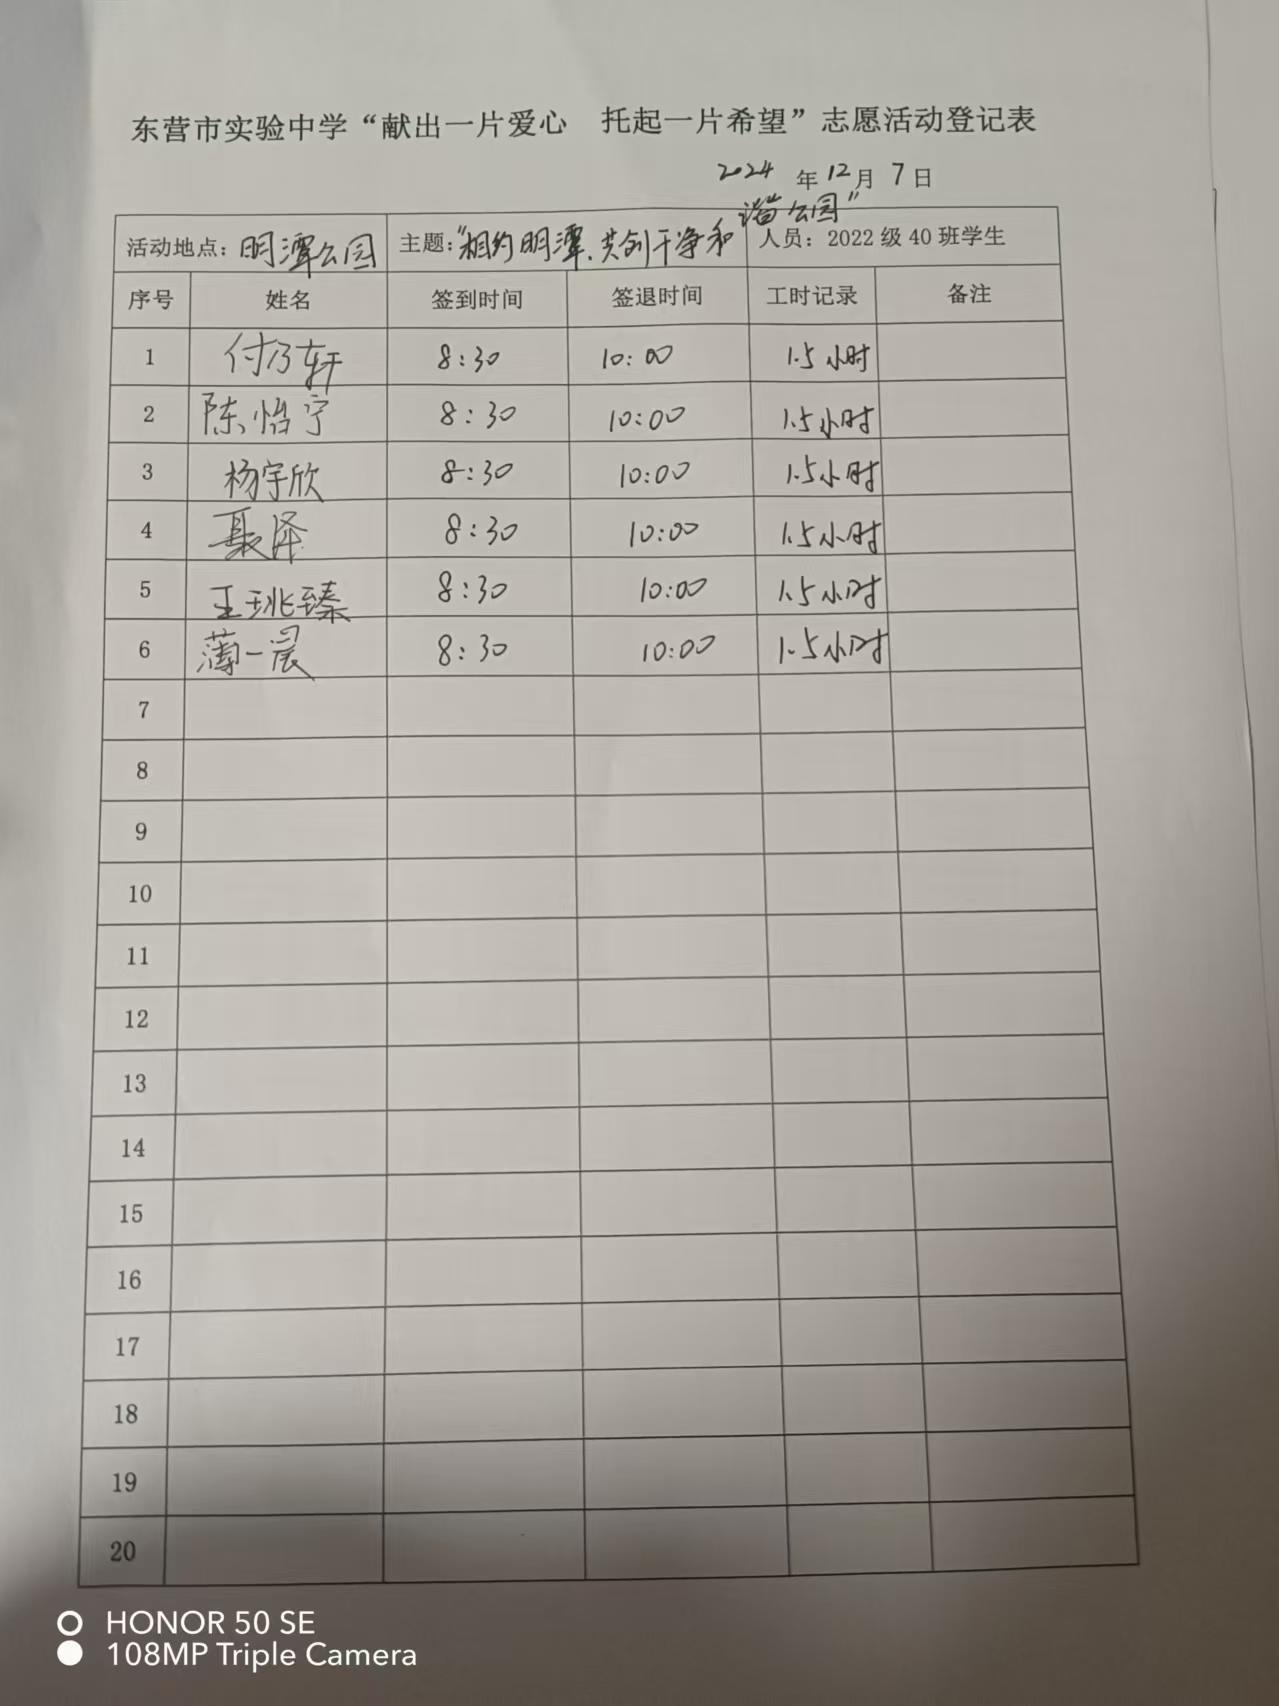 东营市实验中学“献出一片爱心 托起一片希望”志愿活动登记表
2024 年 12 月 7 日
活动地点：明潭公园 主题：“相约明潭、共创干净和谐公园” 人员：2022 级 40 班学生
序号 姓名 签到时间 签退时间 工时记录 备注
1 付乃轩 8:30 10:00 1.5小时
2 陈怡宁 8:30 10:00 1.5小时
3 杨宇欣 8:30 10:00 1.5小时
4 聂泽 8:30 10:00 1.5小时
5 王珧臻 8:30 10:00 1.5小时
6 薄一晨 8:30 10:00 1.5小时
7
8
9
10
11
12
13
14
15
16
17
18
19
20
HONOR 50 SE
108MP Triple Camera